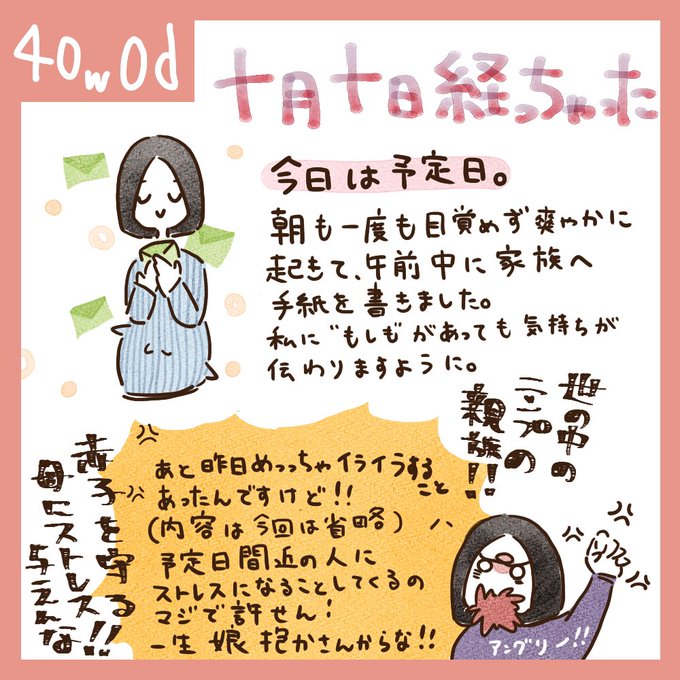 40w0d
十月十日経っちゃった
今日は予定日。
朝も一度も目覚めず爽やかに
起きて、午前中に家族へ
手紙を書きました。
私に“もしも”があっても気持ちが
伝わりますように。
世の中の
ニンプの
親族!!
あと昨日めっっちゃイライラする
こと
あったんですけど!!
(内容は今回は省略)
予定日間近の人に
ストレスになることしてくるの
マジで許せん!
一生娘抱かさんからな!!
赤子を守る!!
母にストレス
与えんな
アングリー!!